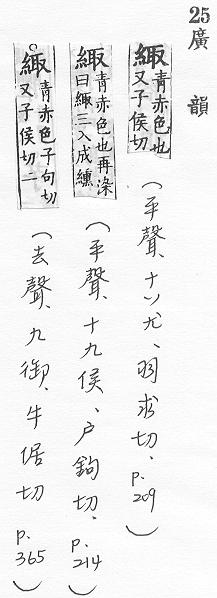 25
廣韻
緅青赤色也又子侯切(平聲、十八尤、羽求切、p.209)
緅青赤色也再染曰緅三入成纁(平聲、十九侯、户鉤切、p.214)
○緅青赤色子句切又子侯切二(去聲、九御、牛倨切p.365)